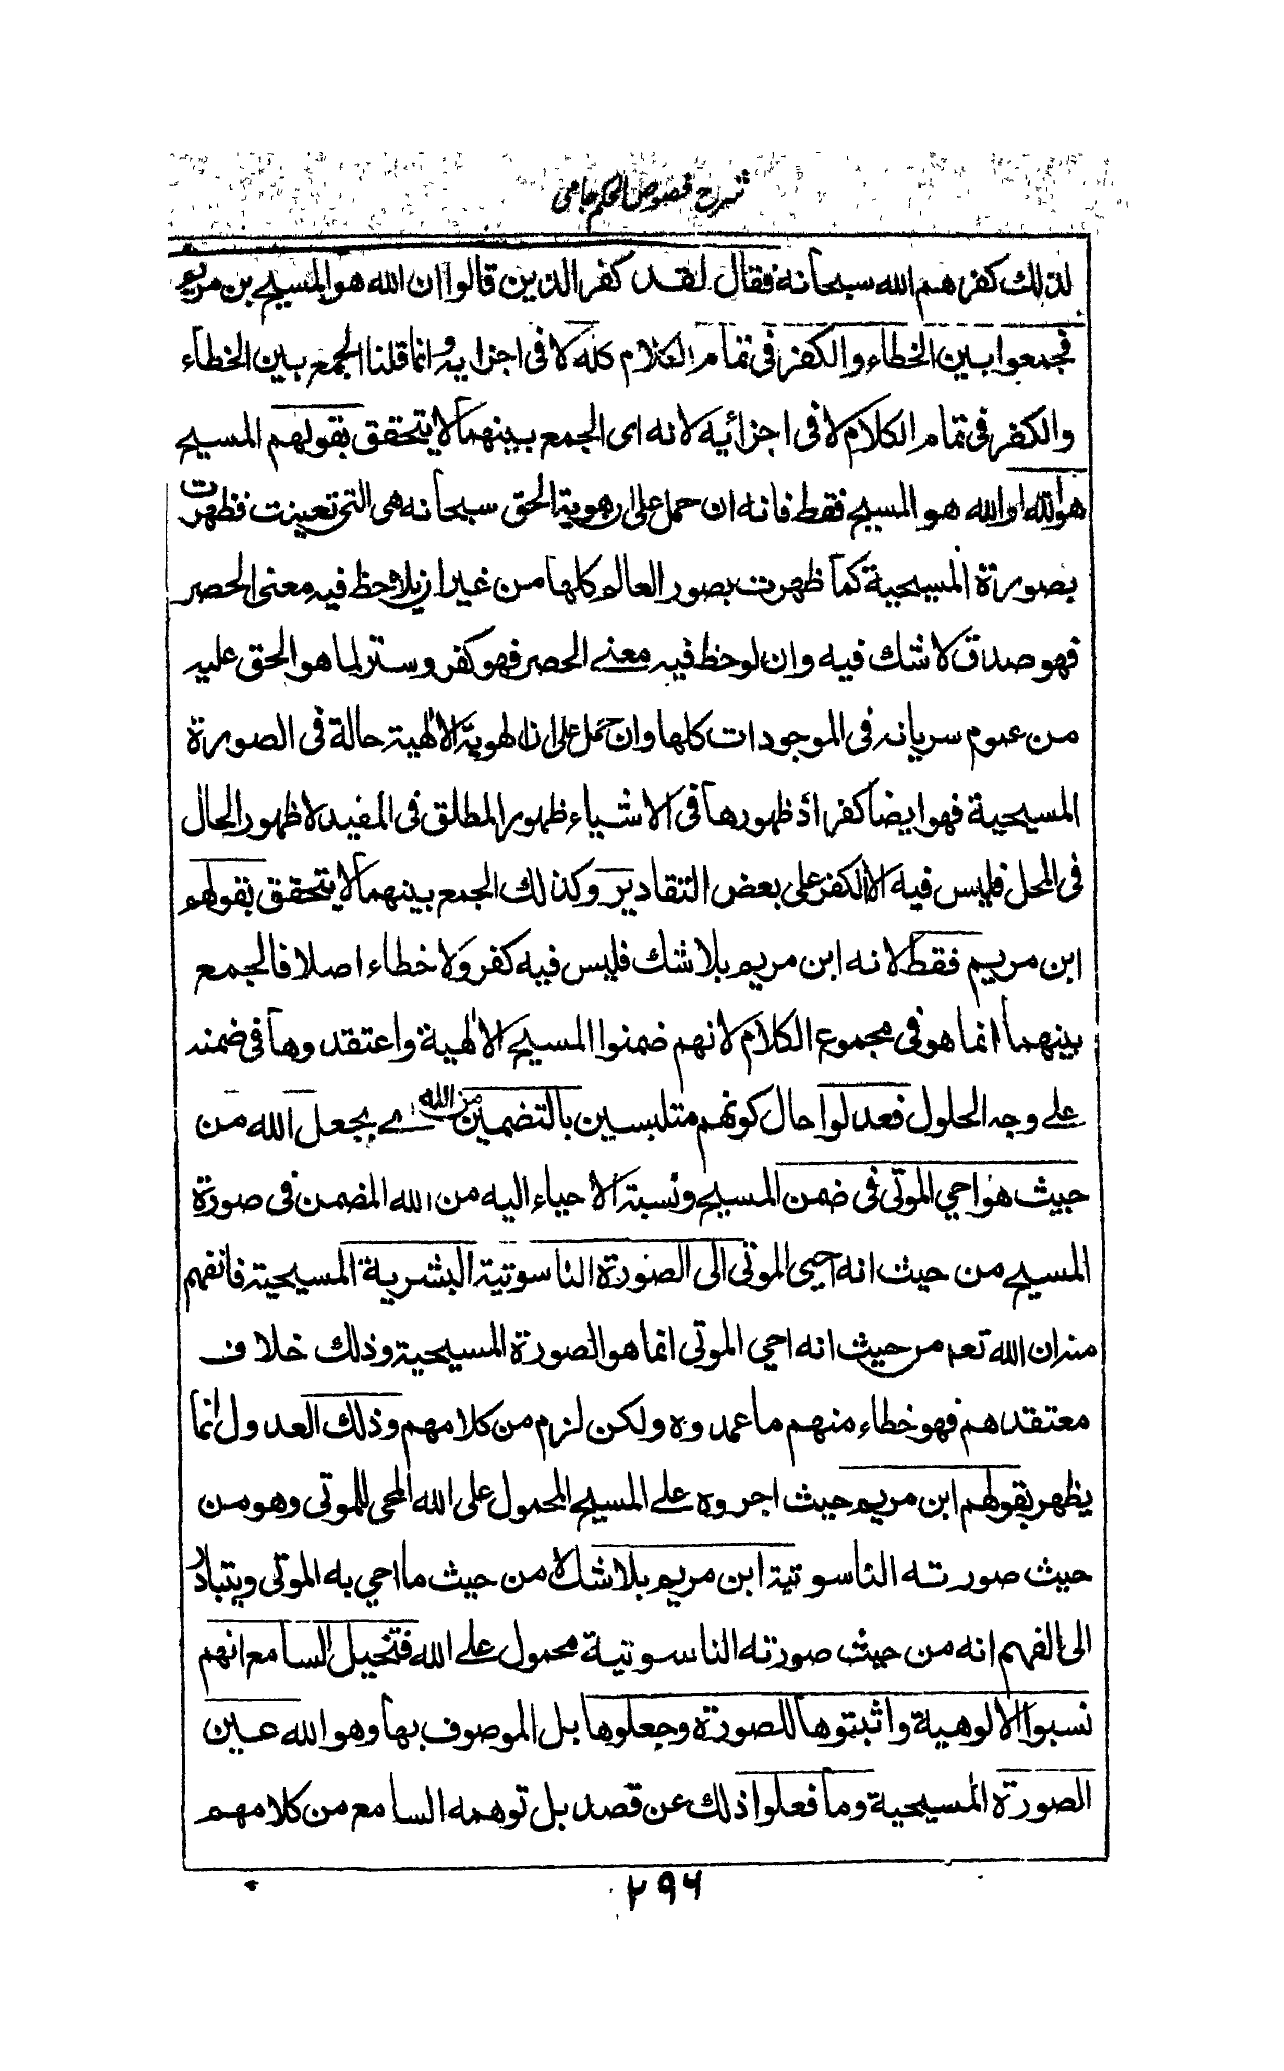 شرح فصوص الحكم جامى
لذلك كفرهم الله سبحانه فقال لقد كفر الذين قالوا ان الله هو المسيح بن مريم
فجمعوا بين الخطاء والكفر فى تمام الكلام كله لا فى اجزايه وانما قلنا الجمع بين الخطاء
والكفر فى تمام الكلام لا فى اجزائيه لانه اى الجمع بينهما لا يتحقق بقولهم المسيح
هو الله او الله هو المسيح فقط فانه ان حمل على ان هوية الحق سبحانه هى التى تعينت فظهرت
بصورة المسيحية كما ظهرت بصور العالم كلها من غير ان يلاحظ فيه معنى الحصر
فهو صدق لا شك فيه وان لوحظ فيه معنے الحصر فهو كفر وستر لما هو الحق عليه
من عموم سريانه فى الموجودات كلها وان حمل على ان الهوية الالهية حالة فى الصورة
المسيحية فهو ايضا كفر اذ ظهورها فى الاشياء ظهور المطلق فى المقيد لا ظهور الحال
فى المحل فليس فيه الا الكفر على بعض التقادير وكذلك الجمع بينهما لا يتحقق بقولهم
ابن مريم فقط لانه ابن مريم بلا شك فليس فيه كفر ولا خطاء اصلا فالجمع
بينهما انما هو فى مجموع الكلام لانهم ضمنوا المسيح الالهية واعتقدوها فى ضمنه
علے وجه الحلول فعدلوا حال كونهم متلبسين بالتضمين من الله اے بجعل الله من
حيث هو احيي الموتى فى ضمن المسيح ونسبة الاحياء اليه من الله المضمن فى صورة
المسيح من حيث انه احيى الموتى الى الصورة الناسوتية البشرية المسيحية فانفهم
منه ان الله تعم من حيث انه احي الموتى انما هو الصورة المسيحية وذلك خلاف
معتقدهم فهو خطاء منهم ما عمدوه ولكن لزم من كلامهم وذلك العدول انما
يظهر بقولهم ابن مريم حيث اجروه علے المسيح المحمول على الله المحي للموتى وهو من
حيث صورته الناسوتية ابن مريم بلا شك لا من حيث ما احي به الموتى ويتبادر
الى الفهم انه من حيث صورته الناسوتية محمول علے الله فتخيل السامع انهم
نسبوا الالوهية واثبتوها للصورة وجعلوها بل الموصوف بها وهو الله عين
الصورة المسيحية وما فعلوا ذلك عن قصد بل توهمه السامع من كلامهم
۲۹۶